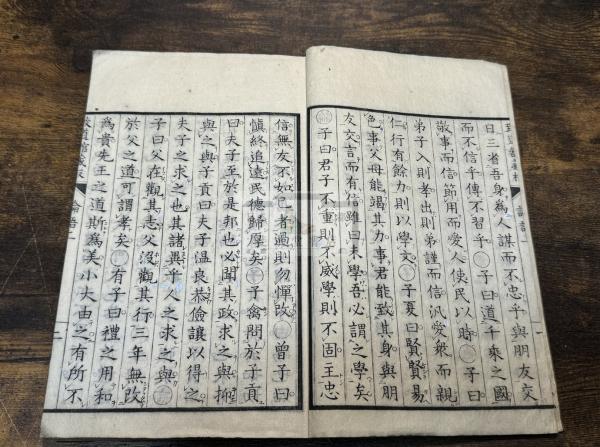 日三省吾身爲人謀而不忠乎與朋友交
而不信乎傳不習乎○子曰道千乘之國
敬事而信節用而愛人使民以時○子曰
弟子入則孝出則弟謹而信汎愛衆而親
仁行有餘力則以學文○子夏曰賢賢易
色事父母能竭其力事君能致其身與朋
友交言而有信雖曰未學吾必謂之學矣
○子曰君子不重則不威學則不固主忠
信無友不如己者過則勿憚改○曾子曰
愼終追遠民德歸厚矣○子禽問於子貢
曰夫子至於是邦也必聞其政求之與抑
與之與子貢曰夫子温良恭儉讓以得之
夫子之求之也其諸異乎人之求之與○
子曰父在觀其志父沒觀其行三年無改
於父之道可謂孝矣○有子曰禮之用和
爲貴先王之道斯爲美小大由之有所不
論語一